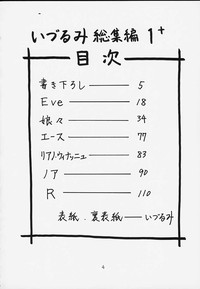 いづるみ総集編 1+
目次
書き下ろし — 5
Eve — 18
娘々 — 34
エース — 77
リアノヴィナッシュ — 83
ノア — 90
R — 110
表紙.裏表紙——いづるみ
4